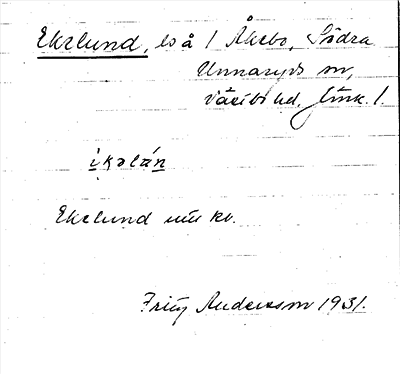 Ekelund, ls å 1 Åkebo, Södra
Unnaryds sn,
Västbo hd, Jönk. l.
ikəlán
Ekelund
Andersson 1931.